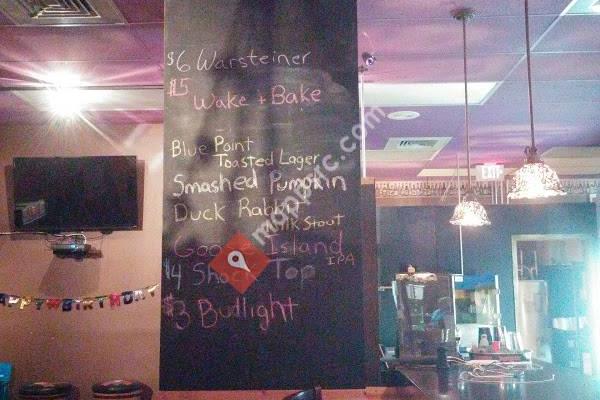 $6 Warsteiner
$15 Wake + Bake
Blue Point
Toasted Lager
Smashed Pumpkin
Duck Rabbit
Milk Stout
Goose Island
IPA
$4 Shock Top
$3 Budlight
EXIT
mapytic.com